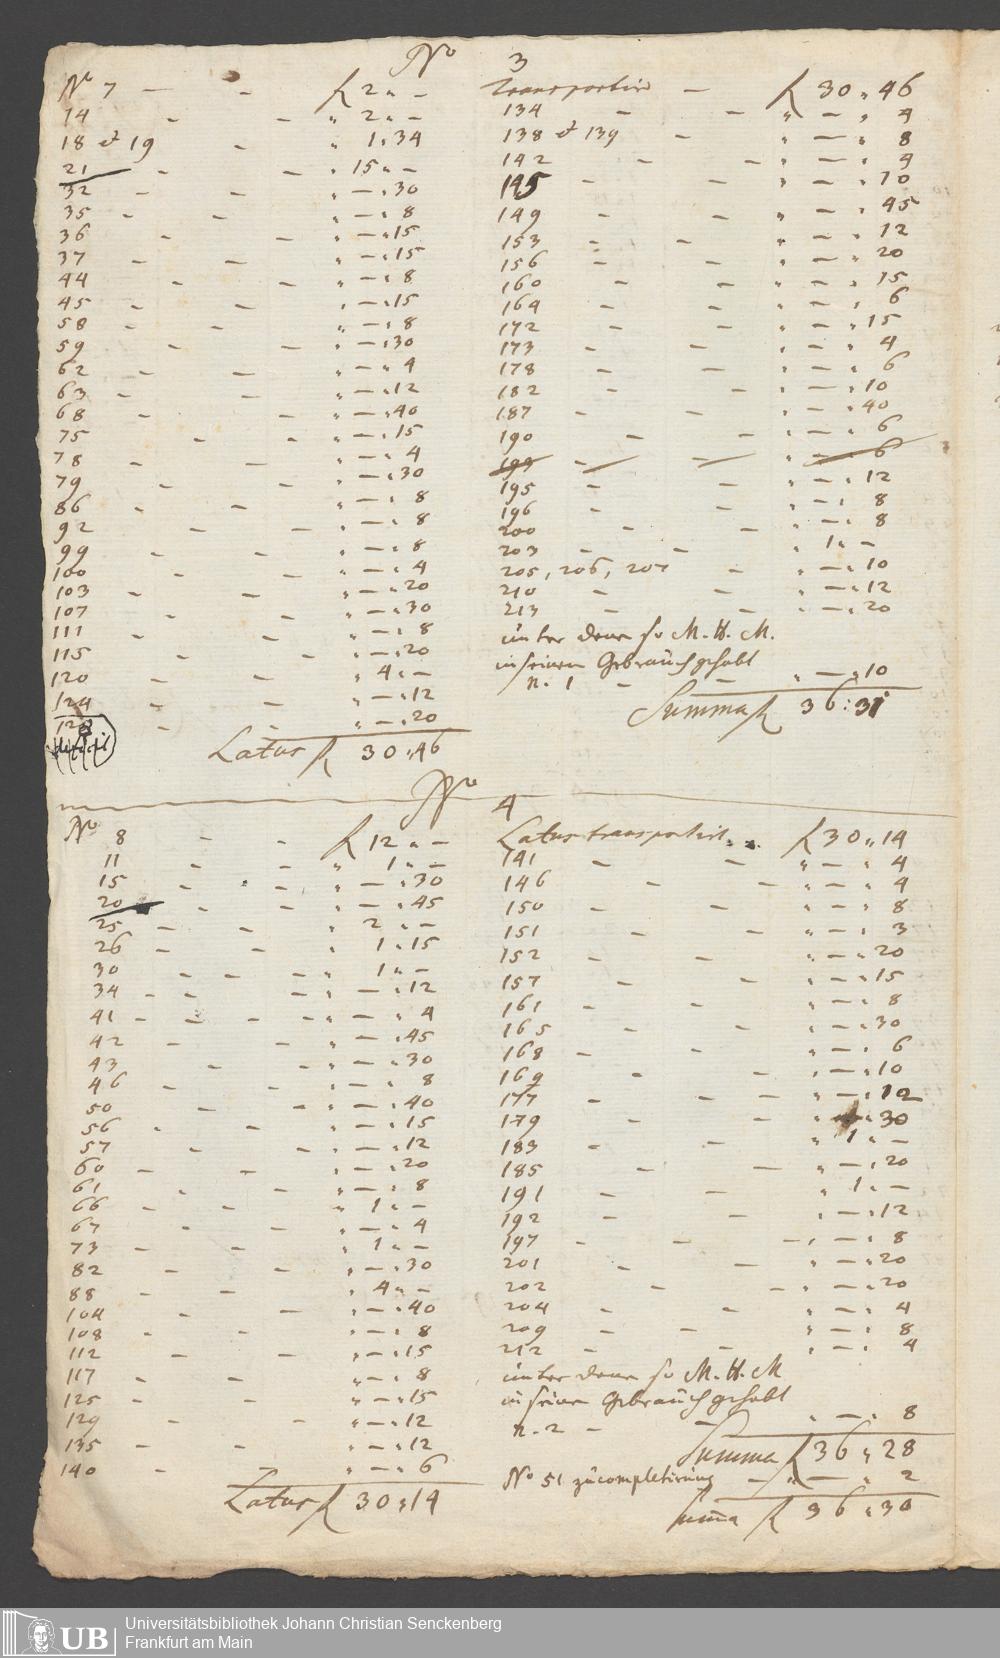 No 3
No 7 — - f 2 " —
14 - - " 2 " —
18 et 19 - " 1 " 34
21 - - " 15 " —
32 - - " — " 30
35 - - " — " 8
36 - - " — " 15
37 - - " — " 15
44 - - " — " 8
45 - - " — " 15
58 - - " — " 8
59 - - " — " 30
62 - - " — " 4
63 - - " — " 12
68 - - " — " 40
75 - - " — " 15
78 - - " — " 4
79 - - " — " 30
86 - - " — " 8
92 - - " — " 8
99 - - " — " 8
100 - - " — " 4
103 - - " — " 20
107 - - " — " 30
111 - - " — " 8
115 - - " — " 20
120 - - " 4 " —
124 - - " — " 12
128 - - " — " 20
Latus f 30 " 46
Transportir — f 30 " 46
134 - - " — " 4
138 et 139 - " — " 8
142 - - " — " 4
145 - - " — " 10
149 - - " — " 45
153 - - " — " 12
156 - - " — " 20
160 - - " — " 15
164 - - " — " 6
172 - - " — " 15
173 - - " — " 4
178 - - " — " 6
182 - - " — " 10
187 - - " — " 40
190 - - " — " 6
199 - - " — " 6
195 - - " — " 12
196 - - " — " 8
200 - - " — " 8
203 - - " 1 " —
205, 206, 207 - " — " 10
210 - - " — " 12
213 - - " — " 20
unter denen so M. H. M.
in seinem Gebrauch gehabt
n. 1 - - " — " 10
Summa f 36 : 31
No 4
No 8 - - f 12 " —
11 - - " 1 " —
15 - - " — " 30
20 - - " — " 45
25 - - " 2 " —
26 - - " 1 " 15
30 - - " 1 " —
34 - - " — " 12
41 - - " — " 4
42 - - " — " 45
43 - - " — " 30
46 - - " — " 8
50 - - " — " 40
56 - - " — " 15
57 - - " — " 12
60 - - " — " 20
61 - - " — " 8
66 - - " 1 " —
67 - - " — " 4
73 - - " 1 " —
82 - - " — " 30
88 - - " 4 " —
104 - - " — " 40
108 - - " — " 8
112 - - " — " 15
117 - - " — " 8
125 - - " — " 15
129 - - " — " 12
135 - - " — " 12
140 - - " — " 6
Latus f 30 " 14
Latus transportirt f 30 " 14
141 - - " — " 4
146 - - " — " 4
150 - - " — " 8
151 - - " — " 3
152 - - " — " 20
157 - - " — " 15
161 - - " — " 8
165 - - " — " 30
168 - - " — " 6
169 - - " — " 10
177 - - " — " 12
179 - - " — " 30
183 - - " 1 " —
185 - - " — " 20
191 - - " 1 " —
192 - - " — " 12
197 - - " — " 8
201 - - " — " 20
202 - - " — " 20
204 - - " — " 4
209 - - " — " 8
212 - - " — " 4
unter denen so M. H. M
in seinem Gebrauch gehabt
n. 2 - — " — " 8
Summa f 36 " 28
No 51 zu completirung — " — " 2
Suma f 36 " 30
Universitätsbibliothek Johann Christian Senckenberg
Frankfurt am Main
UB